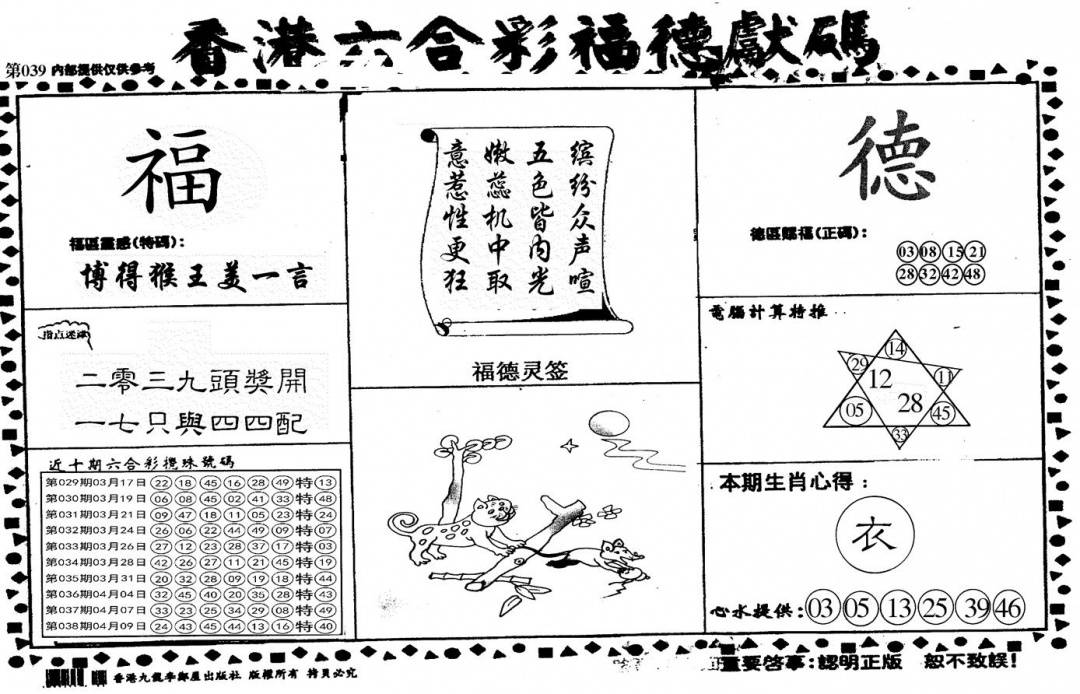 香港六合彩福德獻碼
第039 内部提供仅供参考
福
福區靈感(特碼):
博得猴王美一言
指点迷津
二零三九頭獎開
一七只與四四配
近十期六合彩攪珠號碼
第029期03月17日 22 18 45 16 28 49 特 13
第030期03月19日 06 08 45 02 41 33 特 48
第031期03月21日 09 47 18 11 05 23 特 24
第032期03月24日 26 06 22 44 49 09 特 07
第033期03月26日 27 12 23 28 37 17 特 03
第034期03月28日 42 26 27 11 21 45 特 19
第035期03月31日 20 32 28 09 19 18 特 44
第036期04月04日 32 45 40 20 35 28 特 43
第037期04月07日 33 23 25 34 29 08 特 49
第038期04月09日 24 43 45 44 13 16 特 40
缤纷众声喧
五色皆内光
嫩蕊机中取
意惹性更狂
福德灵签
德
德區賜福(正碼):
03 08 15 21
28 32 42 48
電腦計算特推
14
29 12 11
05 28 45
33
本期生肖心得:
衣
心水提供:03 05 13 25 39 46
重要啓事:認明正版 恕不致誤!
香港九龍李鄭屋出版社 版權所有 拷貝必究